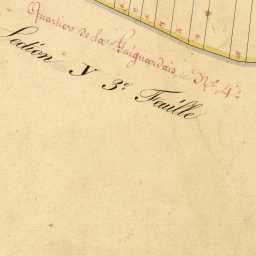 Quartier de la Guiguardais N.º 4.
Section Y 3.e Feuille